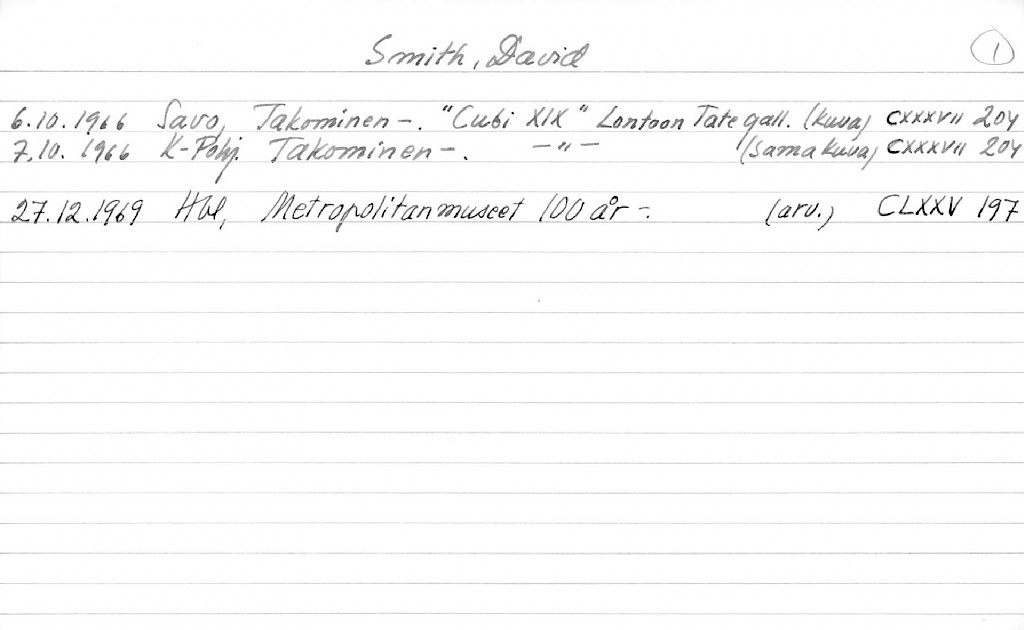 Smith, David
1
6.10.1966 Savo, Takominen -. "Cubi XIX" Lontoon Tate gall. (kuva) CXXXVII 204
7.10.1966 K-Pohj. Takominen -. -"- (sama kuva) CXXXVII 204
27.12.1969 Hbl, Metropolitanmuseet 100 år -. (arv.) CLXXV 197